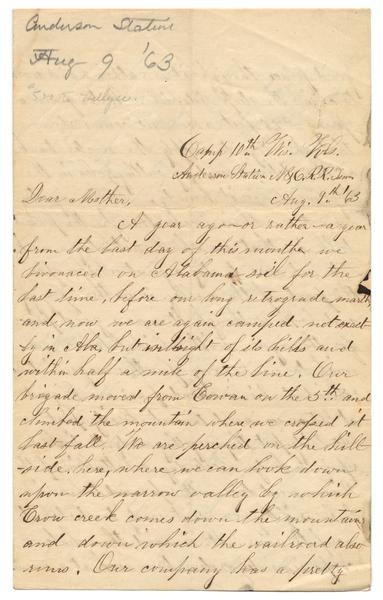 Anderson Station
Aug 9 '63
Camp 10th Wis. Vols.
Anderson Station N&C.R.R. Tenn
Dear Mother, Aug. 9th '63
A year ago or rather a year
from the last day of this month we
bivouaced on Alabama soil for the
last time, before our long retrograde march
and now we are again camped, not exact
ly in Ala, but in sight of its hills and
within half a mile of the line. Our
brigade moved from Cowan on the 5th and
climbed the mountain where we crossed it
last fall. We are perched on the hill
side, here, where we can look down
upon the narrow valley by which
Crow creek comes down the mountain
and down which the railroad also
runs. Our company has a pretty